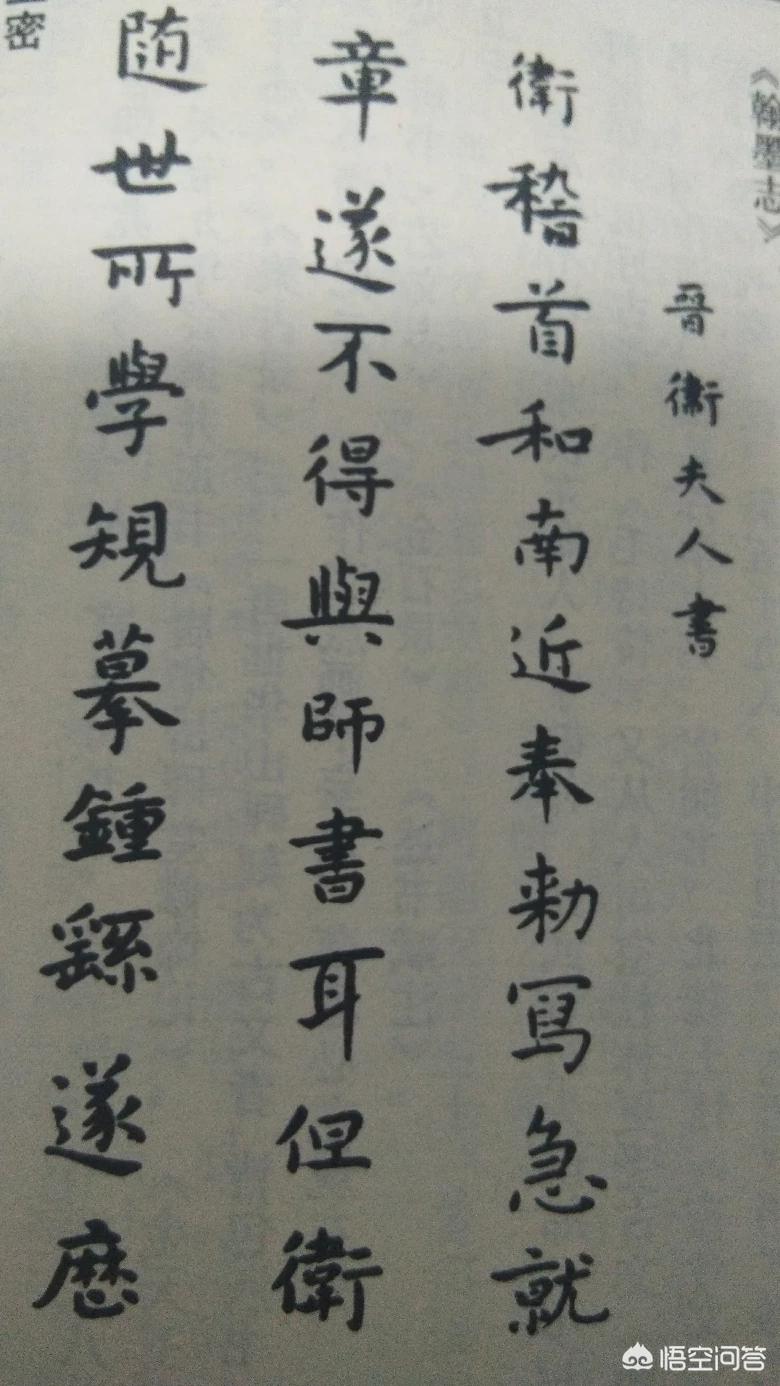 《翰墨志》
晉衛夫人書
衛稽首和南近奉勑寫急就
章遂不得與師書耳但衛
随世所學規摹鍾繇遂歷
密
悟空问答